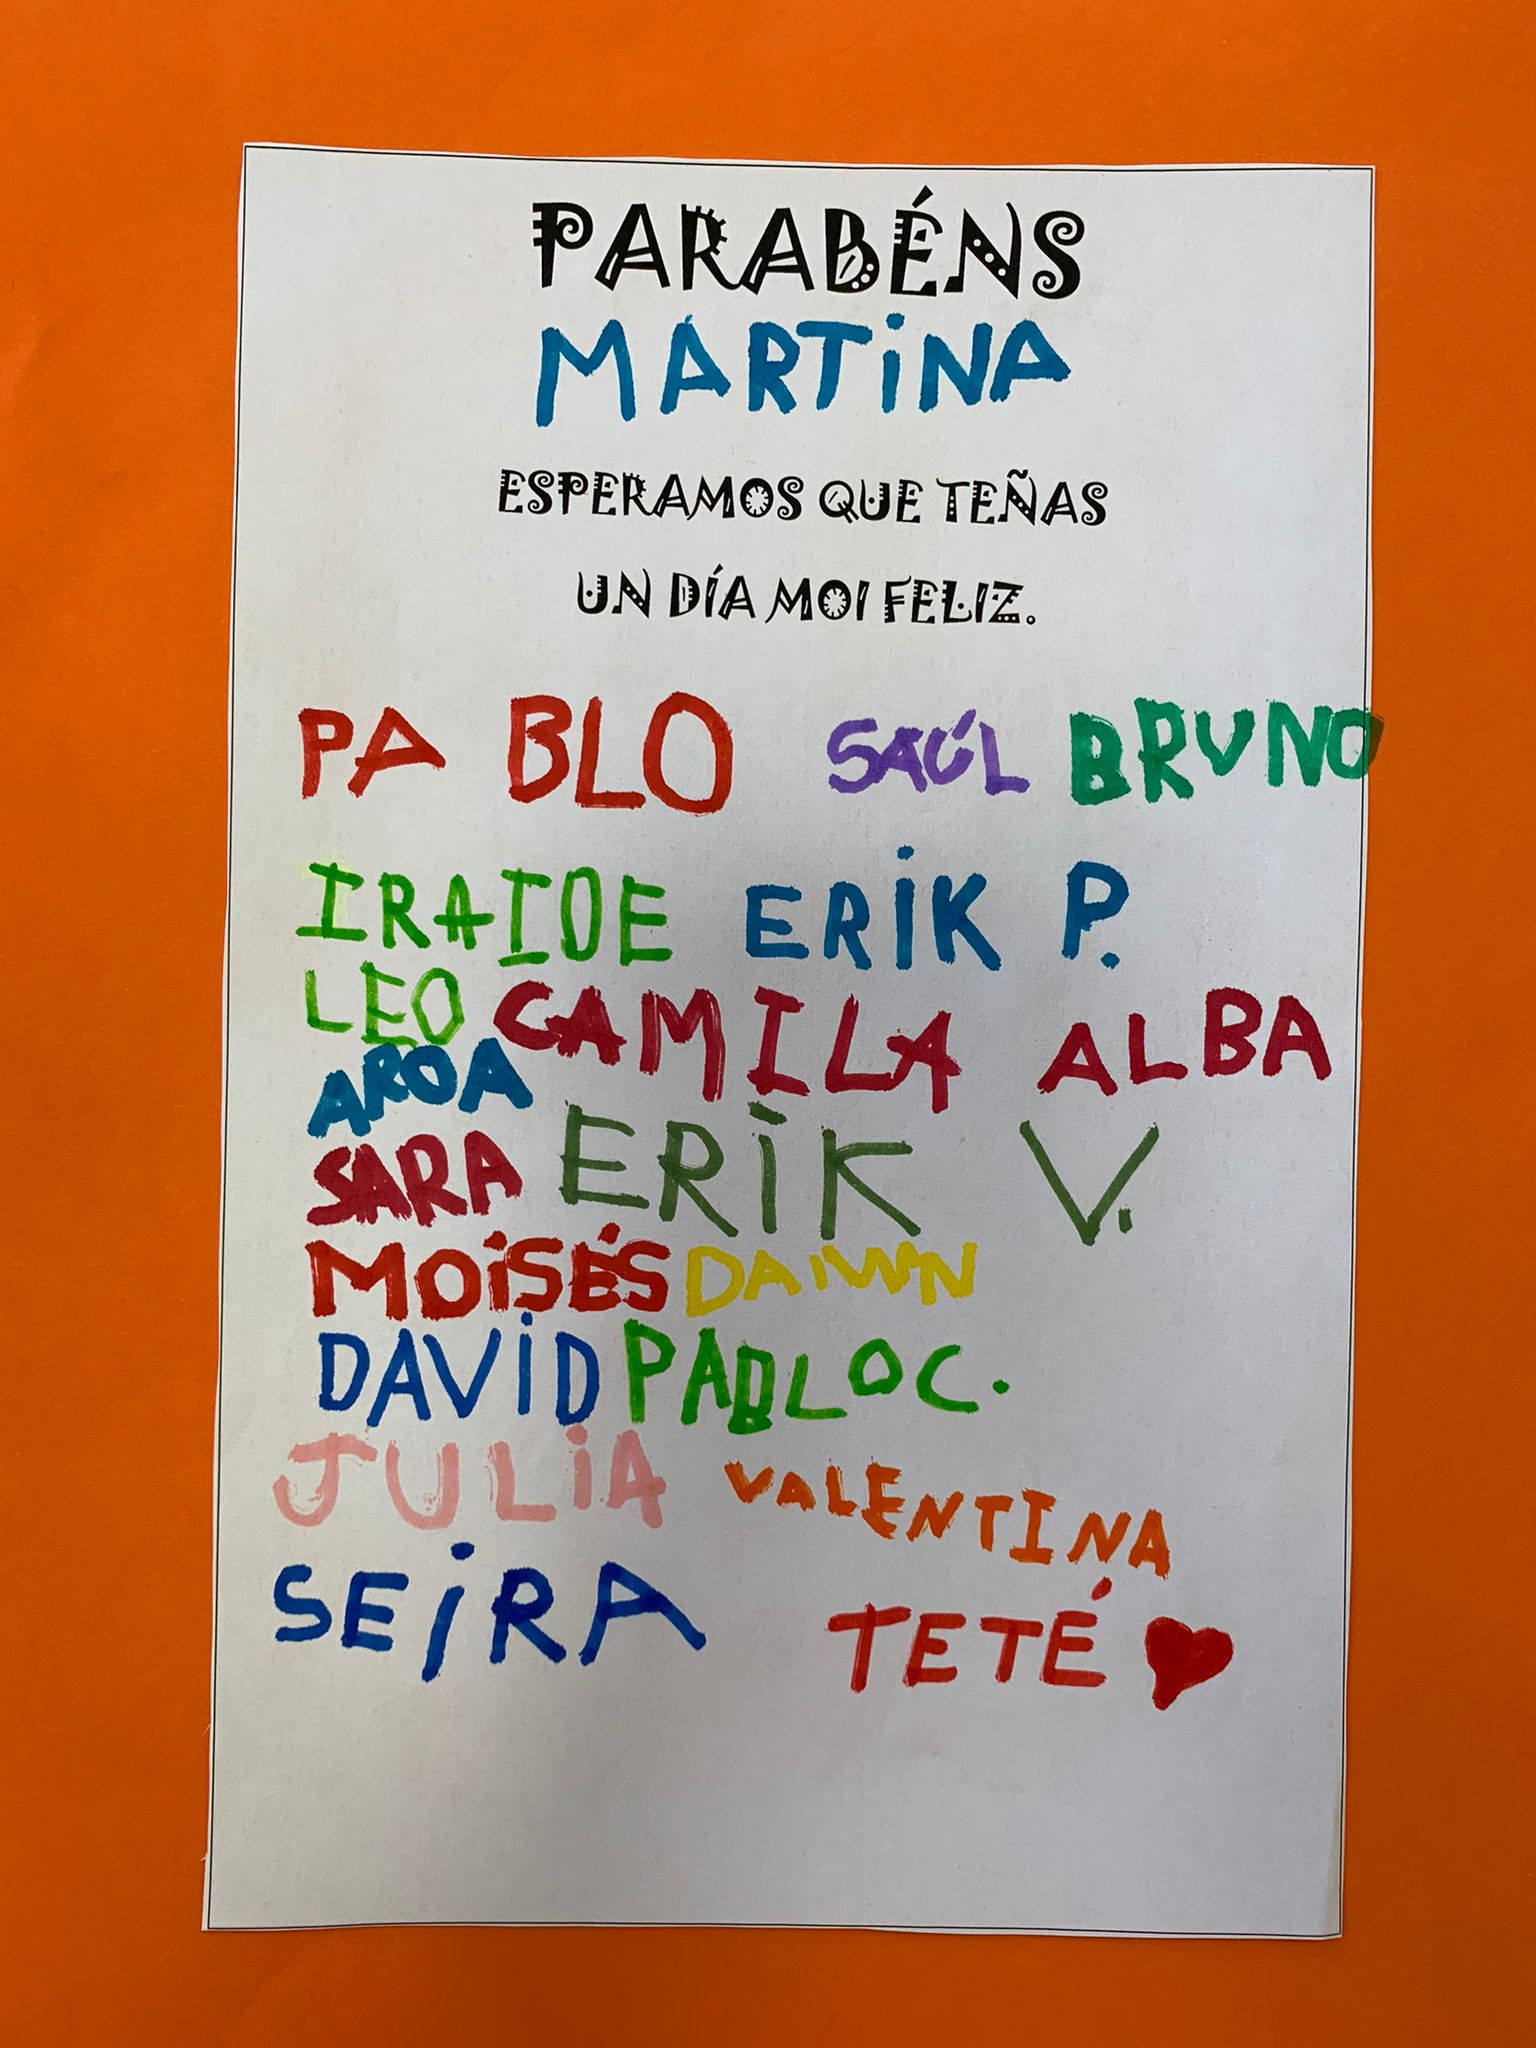 PARABÉNS
MARTiNA
ESPERAMOS QUE TEÑAS
UN DÍA MOI FELIZ.
PABLO SAÚL BRUNO
IRAIDE ERiK P.
LEO CAMILA ALBA
AROA
SARA ERiK V.
MOiSÉS
DAViD PABLO C.
JULiA VALENTINA
SEiRA TETÉ